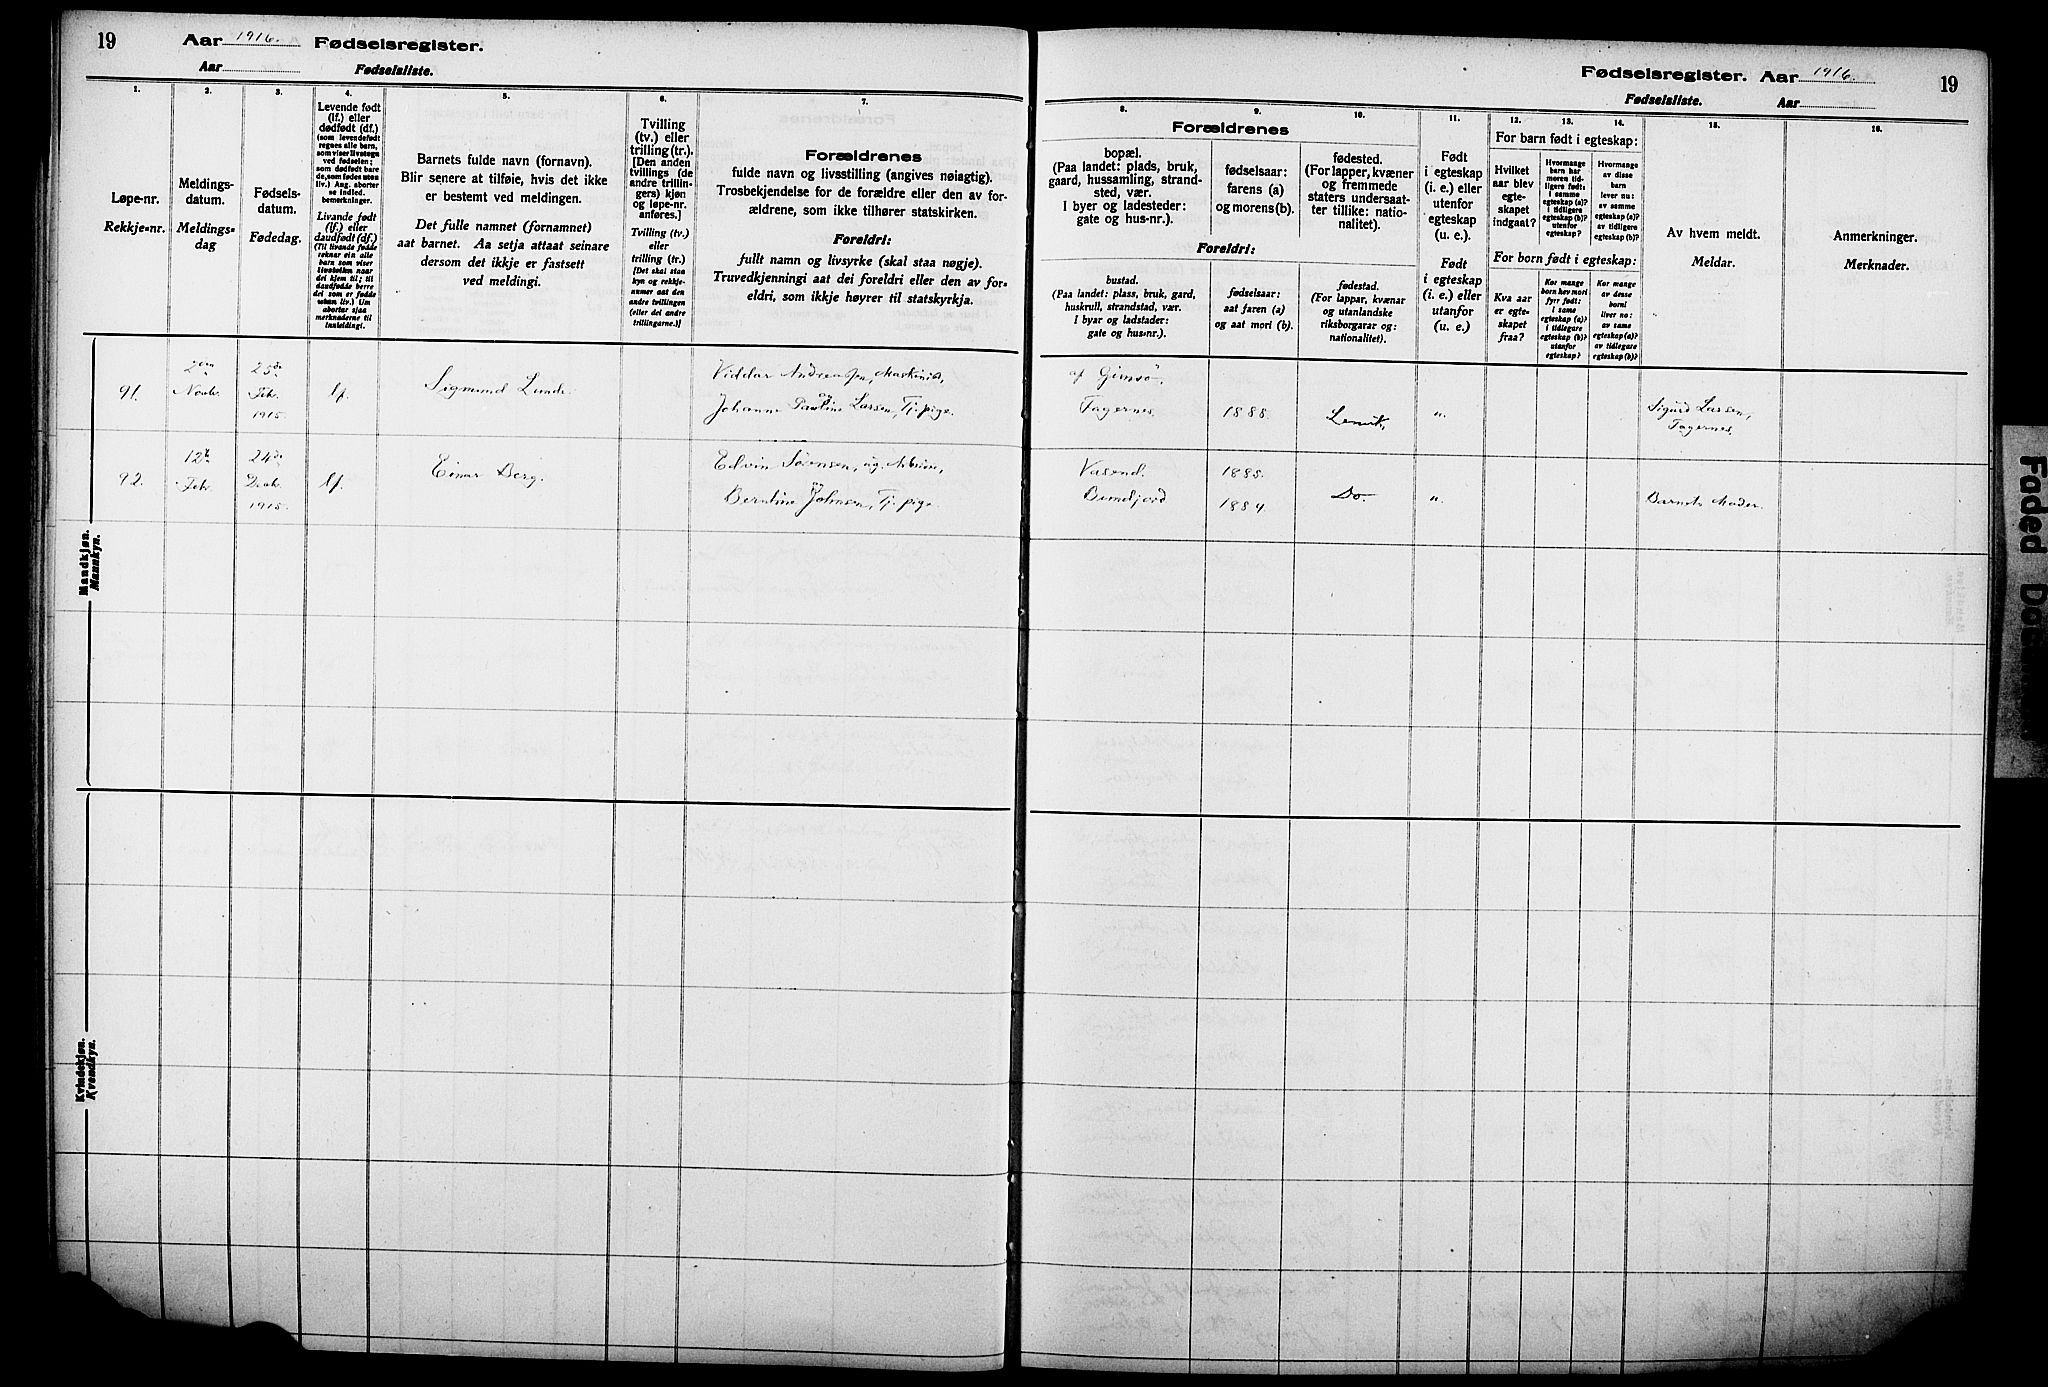 19
Aar 1916. Fødselsregister.
Aar Fødselsliste.
1.
Løpe-nr.
Rekkje-nr.
2.
Meldings-
datum.
Meldings-
dag
3.
Fødsels-
datum.
Fødedag.
4.
Levende født
(lf.) eller
dødfødt (df.)
(som levendefødt
regnes alle barn,
som viser livstegn
ved fødselen;
som dødfødt bare
de, som fødes uten
liv.) Ang. aborter
se indled.
bemerkninger.
Livande født
(lf.) eller
daudfødt (df.)
(Til livande fødde
reknar ein alle
barn som viser
livsteikn naar
dei kjem til; til
daudfødde berre
dei som er fødde
utan liv.) Um
abortar sjaa
merknaderne til
innleidingi.
5.
Barnets fulde navn (fornavn).
Blir senere at tilføie, hvis det ikke
er bestemt ved meldingen.
Det fulle namnet (fornamnet)
aat barnet. Aa setja attaat seinare
dersom det ikkje er fastsett
ved meldingi.
6.
Tvilling
(tv.) eller
trilling (tr.)
[Den anden
tvillings (de
andre trillin-
gers) kjøn
og løpe-nr.
anføres.]
Tvilling (tv.)
eller
trilling (tr.)
[Det skal staa
kyn og rekkje-
numer aat den
andre tvillingen
(eller dei andre
trillingarne.)]
7.
Forældrenes
fulde navn og livsstilling (angives nøiagtig).
Trosbekjendelse for de forældre eller den av for-
ældrene, som ikke tilhører statskirken.
Foreldri:
fullt namn og livsyrke (skal staa nøgje).
Truvedkjenningi aat dei foreldri eller den av for-
eldri, som ikkje høyrer til statskyrkja.
Mandkjøn.
Mannkyn.
91.
2den
Novbr.
25de
Febr.
1915.
lf.
Sigmund Lunde.
Viddar Andreassen, Maskinist,
og
Johanne Pauline Larsen, Tj. pige.
92.
12te
Febr.
24de
Decbr.
1915.
lf.
Einar Berg.
Edvin Sørensen, ug. Arbeider,
og
Berntine Johnsen, Tj. pige.
Kvindekjøn.
Kvendkyn.
Fødselsregister. Aar 1916.
19
Fødselsliste. Aar
8.
9.
10.
Forældrenes
bopæl.
(Paa landet: plads, bruk,
gaard, hussamling, strand-
sted, vær.
I byer og ladesteder:
gate og hus-nr.).
fødselsaar:
farens (a)
og morens (b).
fødested.
(For lapper, kvæner
og fremmede
staters undersaat-
ter tillike: natio-
nalitet).
Foreldri:
bustad.
(Paa landet: plass, bruk, gard,
huskrull, strandstad, vær.
I byar og ladstader:
gate og hus-nr.).
fødselsaar:
aat faren (a)
og aat mori (b).
fødestad.
(For lappar, kvænar
og utanlandske
riksborgarar og:
nationalitet).
11.
Født
i egteskap
(i. e.) eller
utenfor
egteskap
(u. e.).
Født
i egteskap
(i. e.) eller
utanfor
(u. e.).
12.
13.
14.
For barn født i egteskap:
Hvilket
aar blev
egte-
skapet
indgaat?
Hvormange
barn har
moren tid-
ligere født:
i samme
egteskap (a)?
i tidligere
egteskap (b)?
utenfor
egteskap?
Hvormange
av disse
barn
lever nu:
av samme
egteskap (a)?
av tidligere
egteskap (b)?
For born født i egteskap:
Kva aar
er egte-
skapet
fraa?
Kor mange
born hev mori
fyrr født:
i same
egteskap (a)?
i tidlegare
egteskap (b)?
utanfor
egteskap?
Kor mange
av desse
borni
liver no:
av same
egteskap (a)?
av tidlegare
egteskap (b)?
15.
Av hvem meldt.
Meldar.
16.
Anmerkninger.
Merknader.
af Gimsø.
Fagernes.
1888.
Lenvik,
u.
Sigurd Larsen,
Fagernes.
Vasend.
Bundfjord
1885.
1884.
Do.
u.
Barnets Moder.
Faded